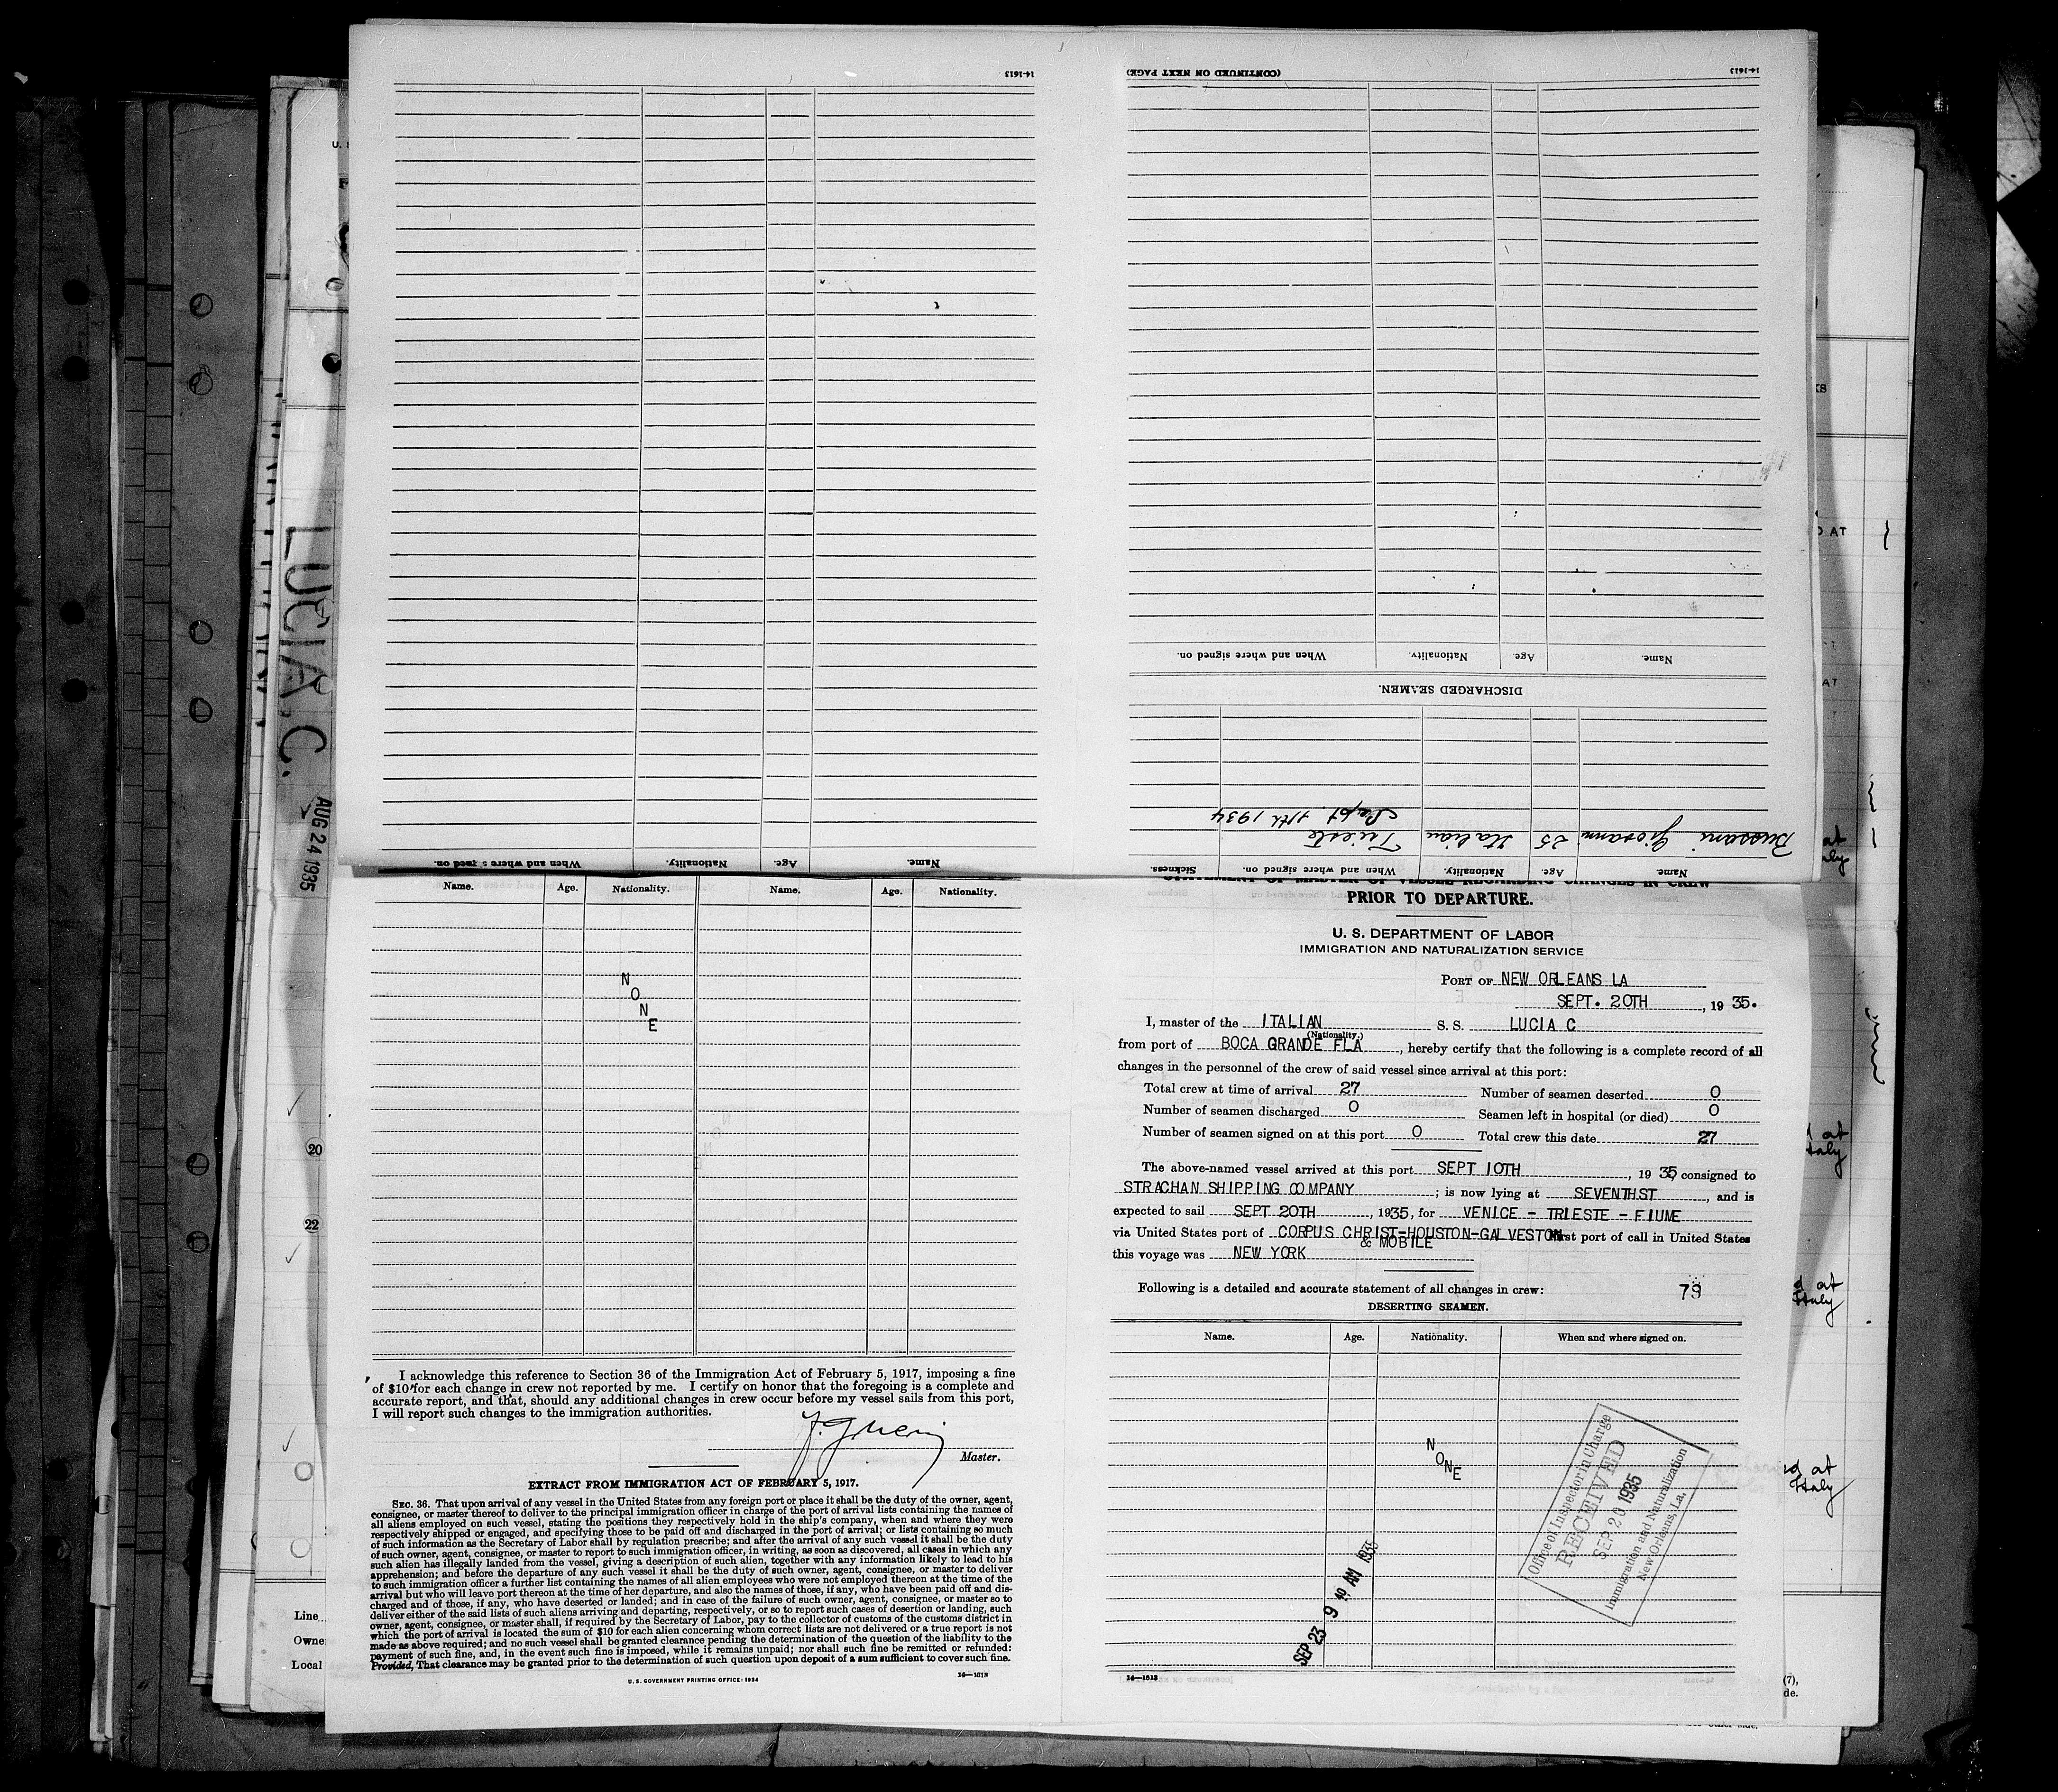 14-1613
(CONTINUED ON NEXT PAGE)
14-1613
Name.
Age.
Nationality.
When and where signed on.
DISCHARGED SEAMEN.
Name.
Age.
Nationality.
When and where signed on.
Sickness.
Giovanni 25 Italian Trieste
Sept. 11th 1934
Name.
Age.
Nationality.
When and where signed on.
LUCIA C.
AUG 24 1935
20
22
Line
Owne
Local
Name.
Age.
Nationality.
Name.
Age.
Nationality.
NONE
I acknowledge this reference to Section 36 of the Immigration Act of February 5, 1917, imposing a fine
of $10 for each change in crew not reported by me. I certify on honor that the foregoing is a complete and
accurate report, and that, should any additional changes in crew occur before my vessel sails from this port,
I will report such changes to the immigration authorities.
Master.
EXTRACT FROM IMMIGRATION ACT OF FEBRUARY 5, 1917.
SEC. 36. That upon arrival of any vessel in the United States from any foreign port or place it shall be the duty of the owner, agent,
consignee, or master thereof to deliver to the principal immigration officer in charge of the port of arrival lists containing the names of
all aliens employed on such vessel, stating the positions they respectively hold in the ship's company, when and where they were
respectively shipped or engaged, and specifying those to be paid off and discharged in the port of arrival; or lists containing so much
of such information as the Secretary of Labor shall by regulation prescribe; and after the arrival of any such vessel it shall be the duty
of such owner, agent, consignee, or master to report to such immigration officer, in writing, as soon as discovered, all cases in which any
such alien has illegally landed from the vessel, giving a description of such alien, together with any information likely to lead to his
apprehension; and before the departure of any such vessel it shall be the duty of such owner, agent, consignee, or master to deliver
to such immigration officer a further list containing the names of all alien employees who were not employed thereon at the time of the
arrival but who will leave port thereon at the time of her departure, and also the names of those, if any, who have been paid off and dis-
charged and of those, if any, who have deserted or landed; and in case of the failure of such owner, agent, consignee, or master so to
deliver either of the said lists of such aliens arriving and departing, respectively, or so to report such cases of desertion or landing, such
owner, agent, consignee, or master shall, if required by the Secretary of Labor, pay to the collector of customs of the customs district in
which the port of arrival is located the sum of $10 for each alien concerning whom correct lists are not delivered or a true report is not
made as above required; and no such vessel shall be granted clearance pending the determination of the question of the liability to the
payment of such fine, and, in the event such fine is imposed, while it remains unpaid; nor shall such fine be remitted or refunded:
Provided, That clearance may be granted prior to the determination of such question upon deposit of a sum sufficient to cover such fine.
U. S. GOVERNMENT PRINTING OFFICE: 1934
14—1613
STATEMENT OF MASTER OF VESSEL REGARDING CHANGES IN CREW
PRIOR TO DEPARTURE.
U. S. DEPARTMENT OF LABOR
IMMIGRATION AND NATURALIZATION SERVICE
PORT OF NEW ORLEANS LA
SEPT. 20TH, 1935.
I, master of the ITALIAN S. S. LUCIA C
(Nationality.)
from port of BOCA GRANDE FLA, hereby certify that the following is a complete record of all
changes in the personnel of the crew of said vessel since arrival at this port:
Total crew at time of arrival 27 Number of seamen deserted 0
Number of seamen discharged 0 Seamen left in hospital (or died) 0
Number of seamen signed on at this port 0 Total crew this date 27
The above-named vessel arrived at this port SEPT 10TH, 1935, consigned to
STRACHAN SHIPPING COMPANY; is now lying at SEVENTHST, and is
expected to sail SEPT 20TH, 1935, for VENICE - TRIESTE - FIUME
via United States port of CORPUS CHRIST-HOUSTON-GALVESTON first port of call in United States
& MOBILE
this voyage was NEW YORK
Following is a detailed and accurate statement of all changes in crew: 79
DESERTING SEAMEN.
Name.
Age.
Nationality.
When and where signed on.
NONE
Office of Inspector in Charge
RECEIVED
SEP 20 1935
Immigration and Naturalization
New Orleans, La.
SEP 23 9 40 AM 1935
14—1613
AT
AT
at
Italy
at
Italy
at
Italy
at
Italy
(7),
de.